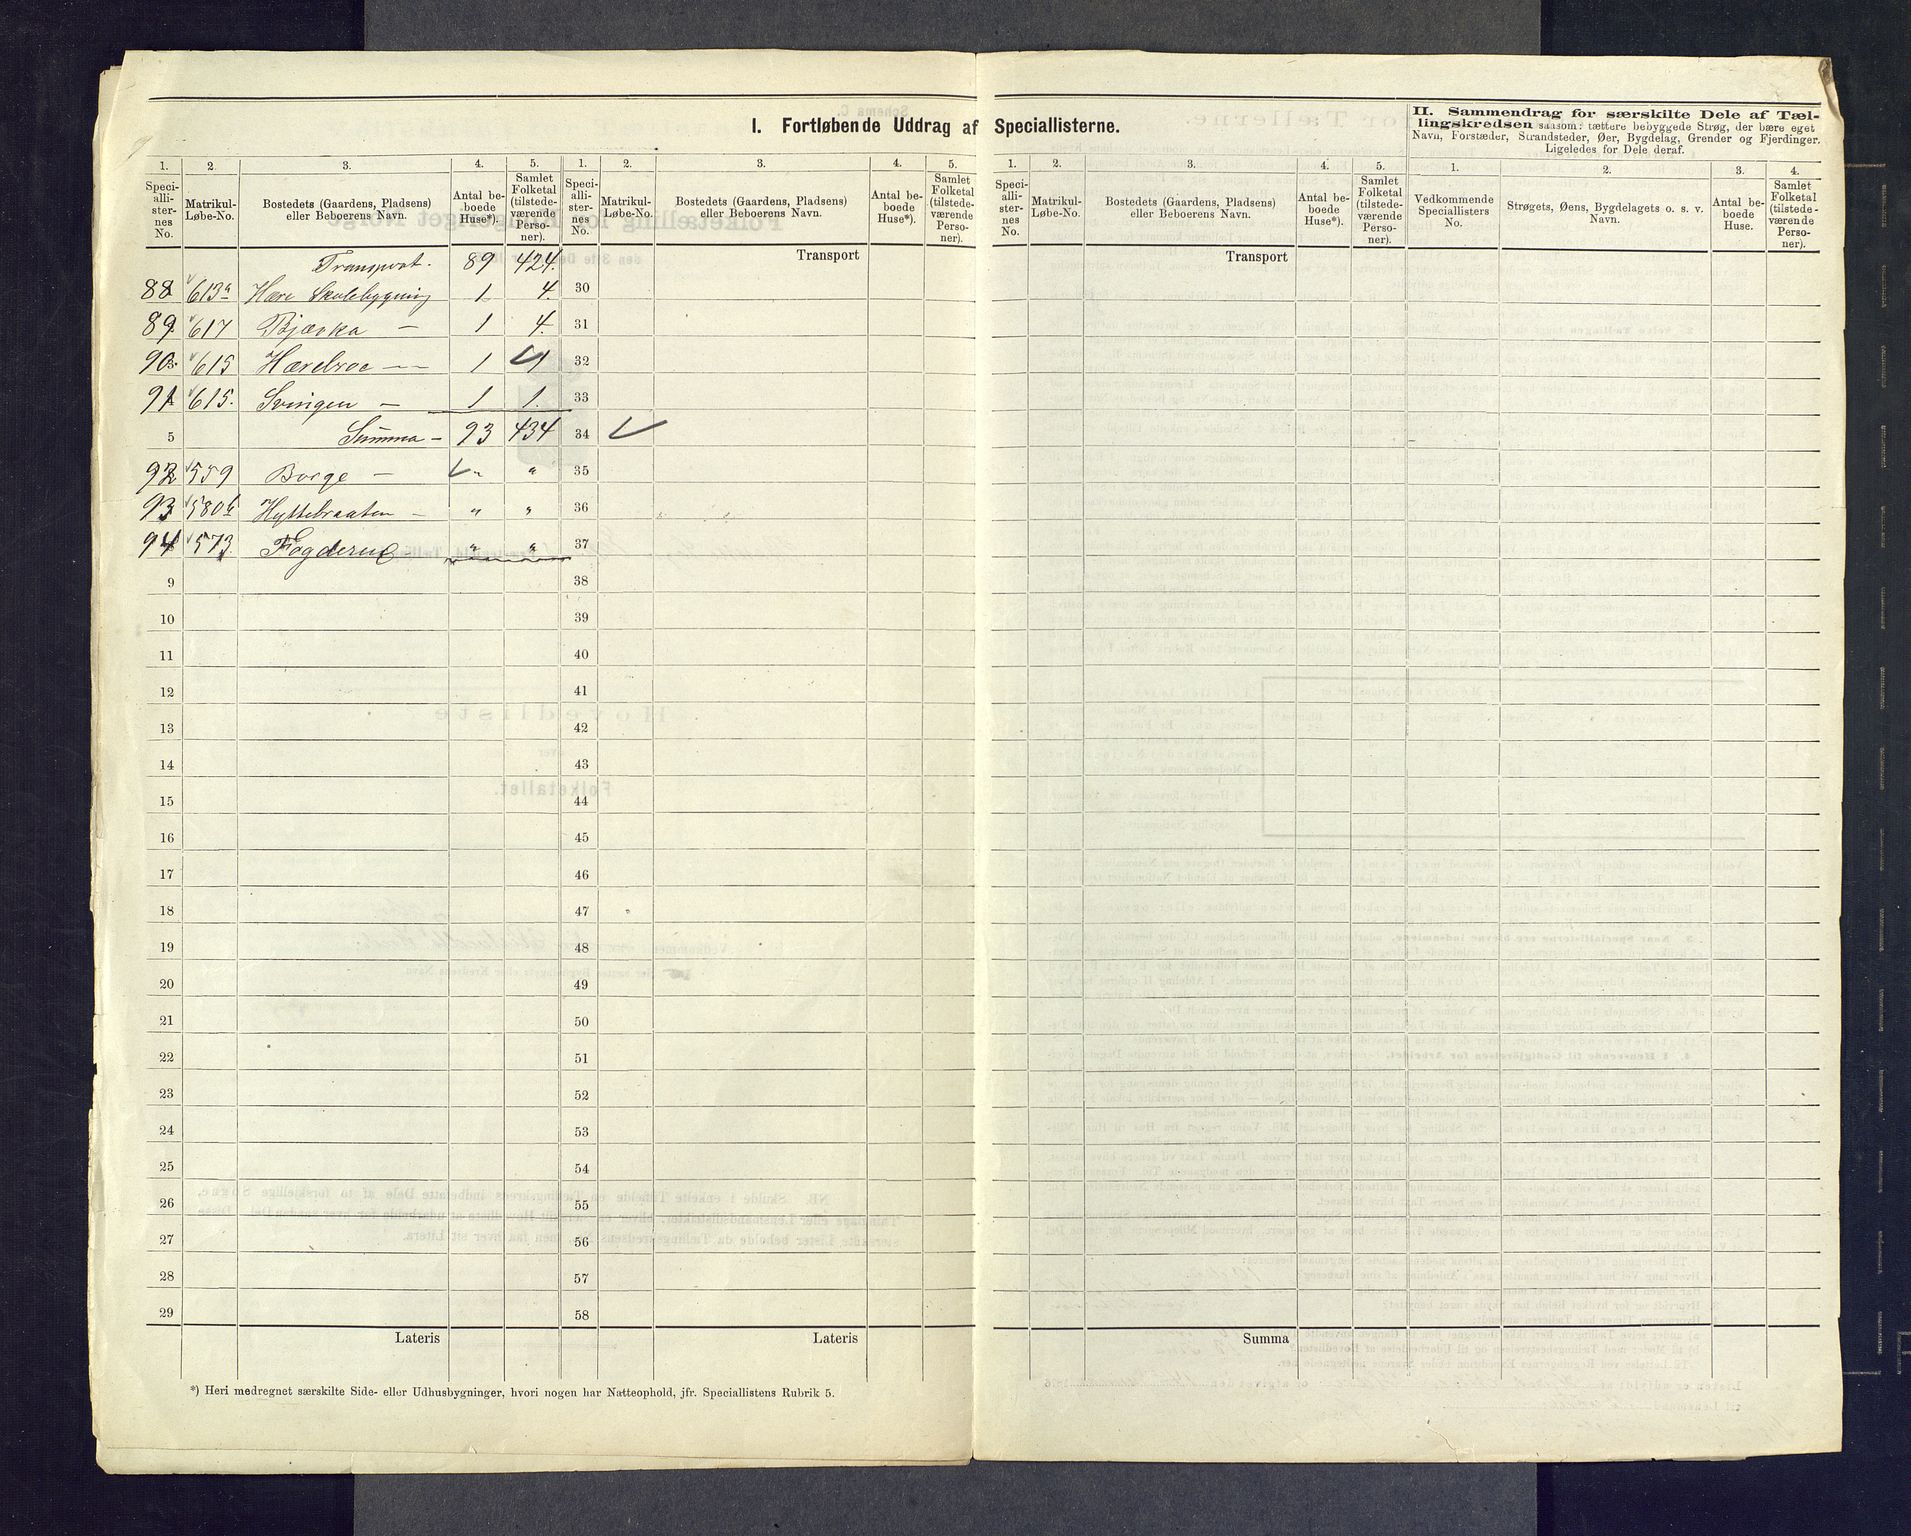 I. Fortløbende Uddrag af Speciallisterne.
II. Sammendrag for særskilte Dele af Tæl-
lingskredsen saasom: tættere bebyggede Strøg, der bære eget
Navn, Forstæder, Strandsteder, Øer, Bygdelag, Grender og Fjerdinger.
Ligeledes for Dele deraf.
1. 2. 3. 4. 5. 1. 2. 3. 4. 5. 1. 2. 3. 4. 5. 1. 2. 3. 4.
Speciallisternes No. Matrikul-Løbe-No. Bostedets (Gaardens, Pladsens) eller Beboerens Navn. Antal beboede Huse*). Samlet Folketal (tilstedeværende Personer).
Speciallisternes No. Matrikul-Løbe-No. Bostedets (Gaardens, Pladsens) eller Beboerens Navn. Antal beboede Huse*). Samlet Folketal (tilstedeværende Personer).
Speciallisternes No. Matrikul-Løbe-No. Bostedets (Gaardens, Pladsens) eller Beboerens Navn. Antal beboede Huse*). Samlet Folketal (tilstedeværende Personer).
Vedkommende Speciallisters No. Strøgets, Øens, Bygdelagets o. s. v. Navn. Antal beboede Huse. Samlet Folketal (tilstedeværende Personer).
Transport. 89 424. Transport Transport
88 613a Hære Skolebygning 1 4. 30
89 617 Bjærka — 1 4. 31
90 615 Hærebroe — 1 1 32
91 615. Svingen — 1 1. 33
5 Summa — 93 434 34
92 559 Borge — " " 35
93 580b Hyttebraaten — " " 36
94 573. Fogderud — " " 37
9 38
10 39
11 40
12 41
13 42
14 43
15 44
16 45
17 46
18 47
19 48
20 49
21 50
22 51
23 52
24 53
25 54
26 55
27 56
28 57
29 58
Lateris Lateris Summa
*) Heri medregnet særskilte Side- eller Udhusbygninger, hvori nogen har Natteophold, jfr. Speciallistens Rubrik 5.